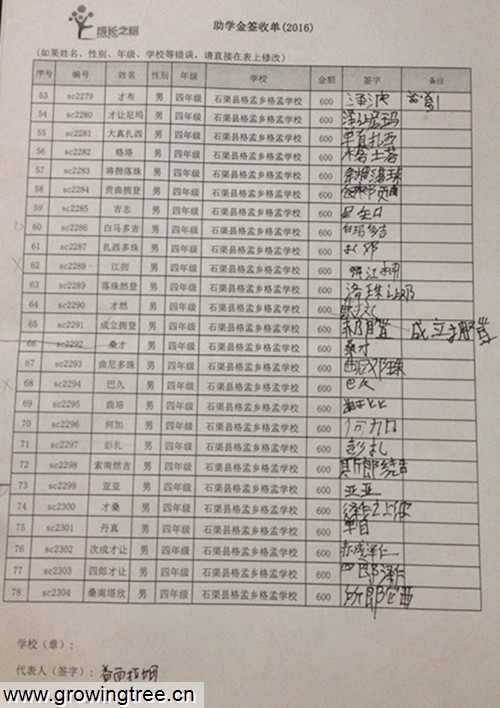 成长之树
助学金签收单(2016)
(如果姓名、性别、年级、学校等错误，请直接在表上修改)
序号 编号 姓名 性别 年级 学校 金额 签字 备注
53 sc2279 才布 男 四年级 石渠县格孟乡格孟学校 600
54 sc2280 才让尼玛 男 四年级 石渠县格孟乡格孟学校 600 泽让尼玛
55 sc2281 大真扎西 男 四年级 石渠县格孟乡格孟学校 600 单真扎西
56 sc2282 格塔 男 四年级 石渠县格孟乡格孟学校 600
57 sc2283 将拥落珠 男 四年级 石渠县格孟乡格孟学校 600
58 sc2284 贵曲拥登 男 四年级 石渠县格孟乡格孟学校 600
59 sc2285 吉志 男 四年级 石渠县格孟乡格孟学校 600
60 sc2286 白马多吉 男 四年级 石渠县格孟乡格孟学校 600 白玛多吉
61 sc2287 扎西多珠 男 四年级 石渠县格孟乡格孟学校 600
62 sc2288 江拥 男 四年级 石渠县格孟乡格孟学校 600
63 sc2289 落珠然登 男 四年级 石渠县格孟乡格孟学校 600
64 sc2290 才然 男 四年级 石渠县格孟乡格孟学校 600
65 sc2291 成立拥登 男 四年级 石渠县格孟乡格孟学校 600 成立
66 sc2292 桑才 男 四年级 石渠县格孟乡格孟学校 600 桑才
67 sc2293 曲尼多珠 男 四年级 石渠县格孟乡格孟学校 600
68 sc2294 巴久 男 四年级 石渠县格孟乡格孟学校 600 巴久
69 sc2295 曲培 男 四年级 石渠县格孟乡格孟学校 600
70 sc2296 何加 男 四年级 石渠县格孟乡格孟学校 600 何加
71 sc2297 彭扎 男 四年级 石渠县格孟乡格孟学校 600 彭扎
72 sc2298 索南然吉 男 四年级 石渠县格孟乡格孟学校 600
73 sc2299 亚亚 男 四年级 石渠县格孟乡格孟学校 600 亚亚
74 sc2300 才桑 男 四年级 石渠县格孟乡格孟学校 600
75 sc2301 丹真 男 四年级 石渠县格孟乡格孟学校 600
76 sc2302 次成才让 男 四年级 石渠县格孟乡格孟学校 600 赤成泽仁
77 sc2303 四郎才让 男 四年级 石渠县格孟乡格孟学校 600 四郎泽仁
78 sc2304 桑南塔放 男 四年级 石渠县格孟乡格孟学校 600
学校（章）：
代表人（签字）：
www.growingtree.cn